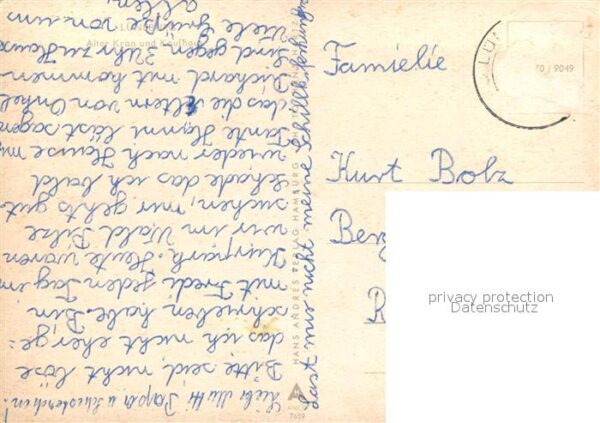 Liebe Mutti Pappa u Schwesterchen!
Bitte seid nicht böse
das ich nicht eher ge=
schrieben habe. Bin
mit Fredi jeden Tag im
Kurpark. Heute waren
wir im Wald Pilze
suchen, mir gehts gut.
Schade das ich bald
wieder nach Hause muß
Tante Hanni läst sagen
das die Eltern von Onkel
Richard mit kommen
Sind gegen 3 Uhr zu Hause
Viele Grüße von uns
allen
Last mir nicht meine Schillkr
Famielie
Kurt Bolz
Ben
R
LÜ
70 / 9049
Alter Kran und Kaufhaus
HANS ANDRES VERLAG HAMBURG
7659
privacy protection
Datenschutz